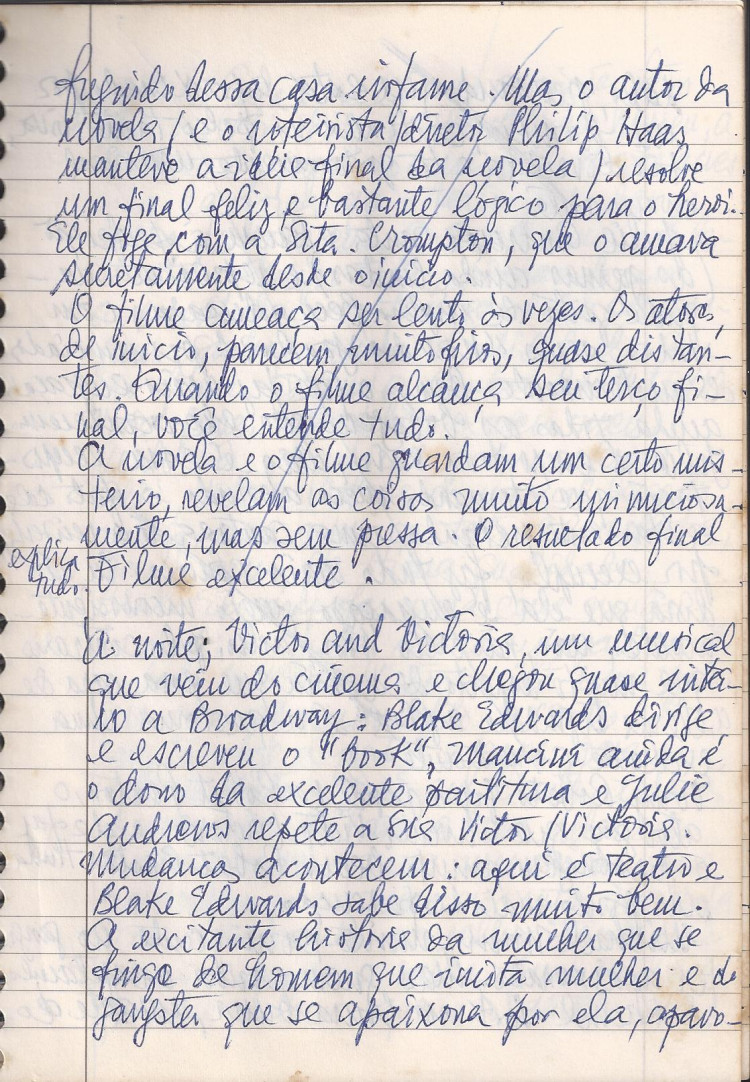 fugindo dessa casa infame. Mas o autor da
novela / e o roteirista / diretor Philip Haas
manteve a idéia-final da novela / resolve
um final feliz e bastante lógico para o herói.
Ele foge, com a Srta. Crompton, que o amava
secretamente desde o início.
O filme ameaça ser lento às vezes. Os atores,
de início, parecem muito frios, quase distan-
tes. Quando o filme alcança seu terço fi-
nal, você entende tudo.
A novela e o filme guardam um certo mis-
tério, revelam as coisas muito minuciosa-
mente, mas sem pressa. O resultado final
explica
tudo. Filme excelente.
À noite; Victor and Victoria, um musical
que vem do cinema e chegou quase intei-
ro a Broadway: Blake Edwards dirige
e escreveu o "book", Mancini ainda é
o dono da excelente partitura e Julie
Andrews repete a sua Victor / Victoria.
Mudanças acontecem: aqui é teatro e
Blake Edwards sabe disso muito bem.
A excitante história da mulher que se
finge de homem que imita mulher e do
gangster que se apaixona por ela, apavo-